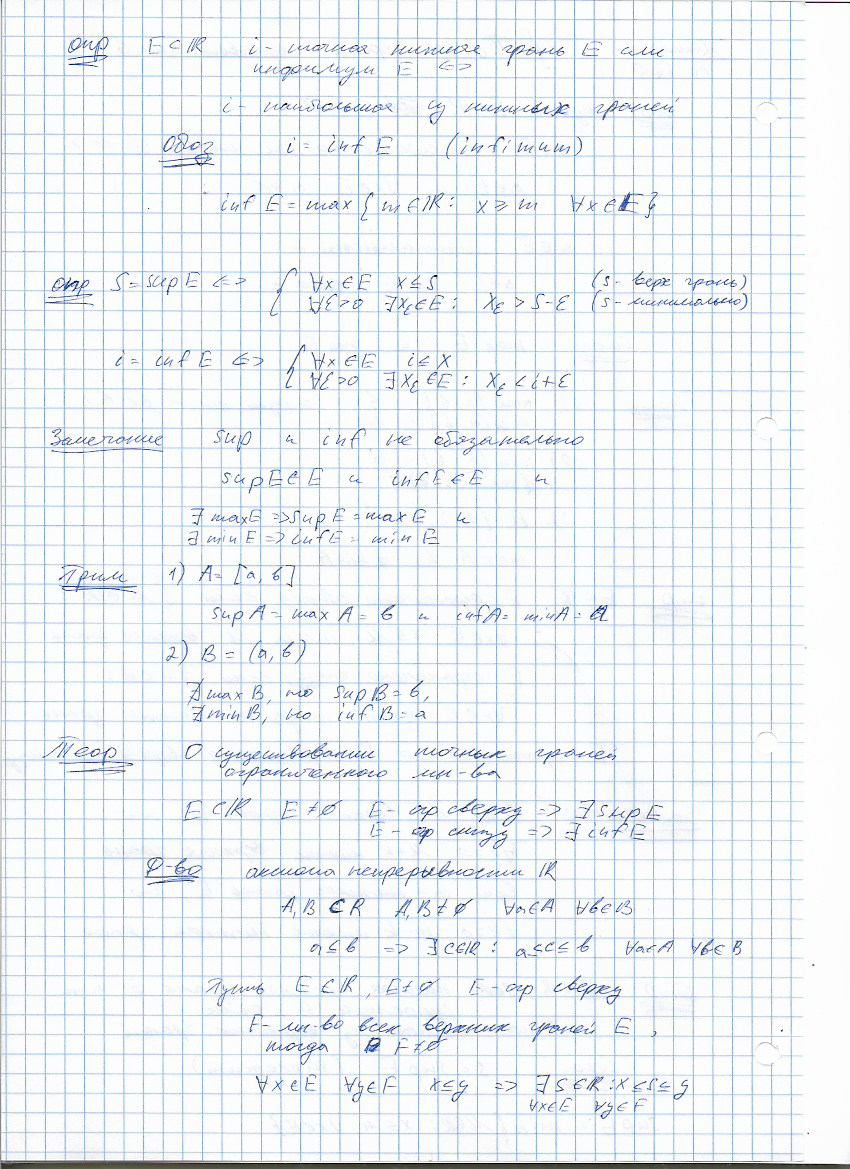 опр E ⊂ ℝ i - точная нижняя грань E или
инфимум E <=>
i - наибольшая из нижних граней
Обоз i = inf E (infimum)
inf E = max { m ∈ ℝ : x ⩾ m ∀x ∈ E }
опр S = sup E <=> { ∀x ∈ E x ≤ S (S - верх грань)
∀ε>0 ∃xε ∈ E : xε > S-ε (S - минимально)
i = inf E <=> { ∀x ∈ E i ≤ x
∀ε>0 ∃xε ∈ E : xε < i+ε
Замечание sup и inf не обязательно
sup E ∈ E и inf E ∈ E и
∃ max E => sup E = max E и
∃ min E => inf E = min E
Прим 1) A = [a, b]
sup A = max A = b и inf A = min A = a
2) B = (a, b)
∄ max B, но sup B = b,
∄ min B, но inf B = a
Теор О существовании точных граней
ограниченного мн-ва
E ⊂ ℝ E ≠ ∅ E - огр сверху => ∃ sup E
E - огр снизу => ∃ inf E
Д-во аксиома непрерывности ℝ
A, B ⊂ R A, B ≠ ∅ ∀a∈A ∀b∈B
a ≤ b => ∃ c∈ℝ : a ≤ c ≤ b ∀a∈A ∀b∈B
Пусть E ⊂ ℝ, E ≠ ∅ E - огр сверху
F - мн-во всех верхних граней E ,
тогда F ≠ ∅
∀x∈E ∀y∈F x ≤ y => ∃ S∈ℝ : x ≤ S ≤ y
∀x∈E ∀y∈F